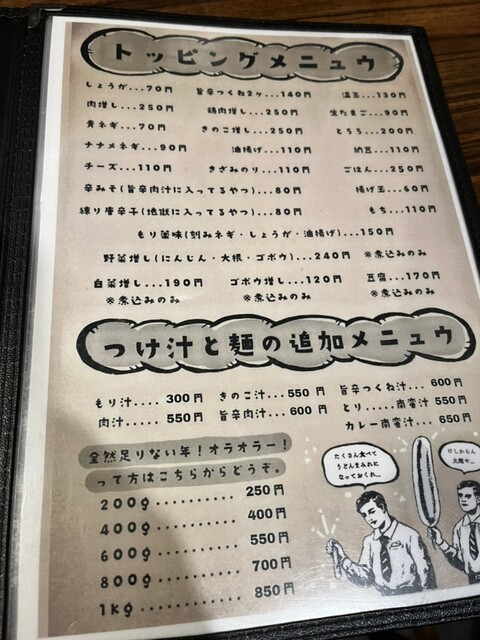 トッピングメニュウ
しょうが...70円 旨辛つくね2ケ...140円 温玉...130円
肉増し...250円 鶏肉増し...250円 生たまご...90円
青ネギ...70円 きのこ増し...250円 とろろ...200円
ナナメネギ...90円 油揚げ...110円 納豆...110円
チーズ...110円 きざみのり...110円 ごはん...250円
辛みそ(旨辛肉汁に入ってるやつ)...80円 揚げ玉...60円
練り唐辛子(地獄に入ってるやつ)...80円 もち...110円
もり薬味(刻みネギ・しょうが・油揚げ)...150円
野菜増し(にんじん・大根・ゴボウ)...240円 ※煮込みのみ
白菜増し...190円 ゴボウ増し...120円 豆腐...170円
※煮込みのみ ※煮込みのみ ※煮込みのみ
つけ汁と麺の追加メニュウ
もり汁.... 300円 きのこ汁...550円 旨辛つくね汁...600円
肉汁..... 550円 旨辛肉汁...600円 とり.....南蛮汁 550円
カレー南蛮汁... 650円
全然足りない年!オラオラー!
って方はこちらからどうぞ。
200g.......... 250円
400g.......... 400円
600g.......... 550円
800g.......... 700円
1kg........... 850円
たくさん食べて
うどんまみれに
なっておくれ..